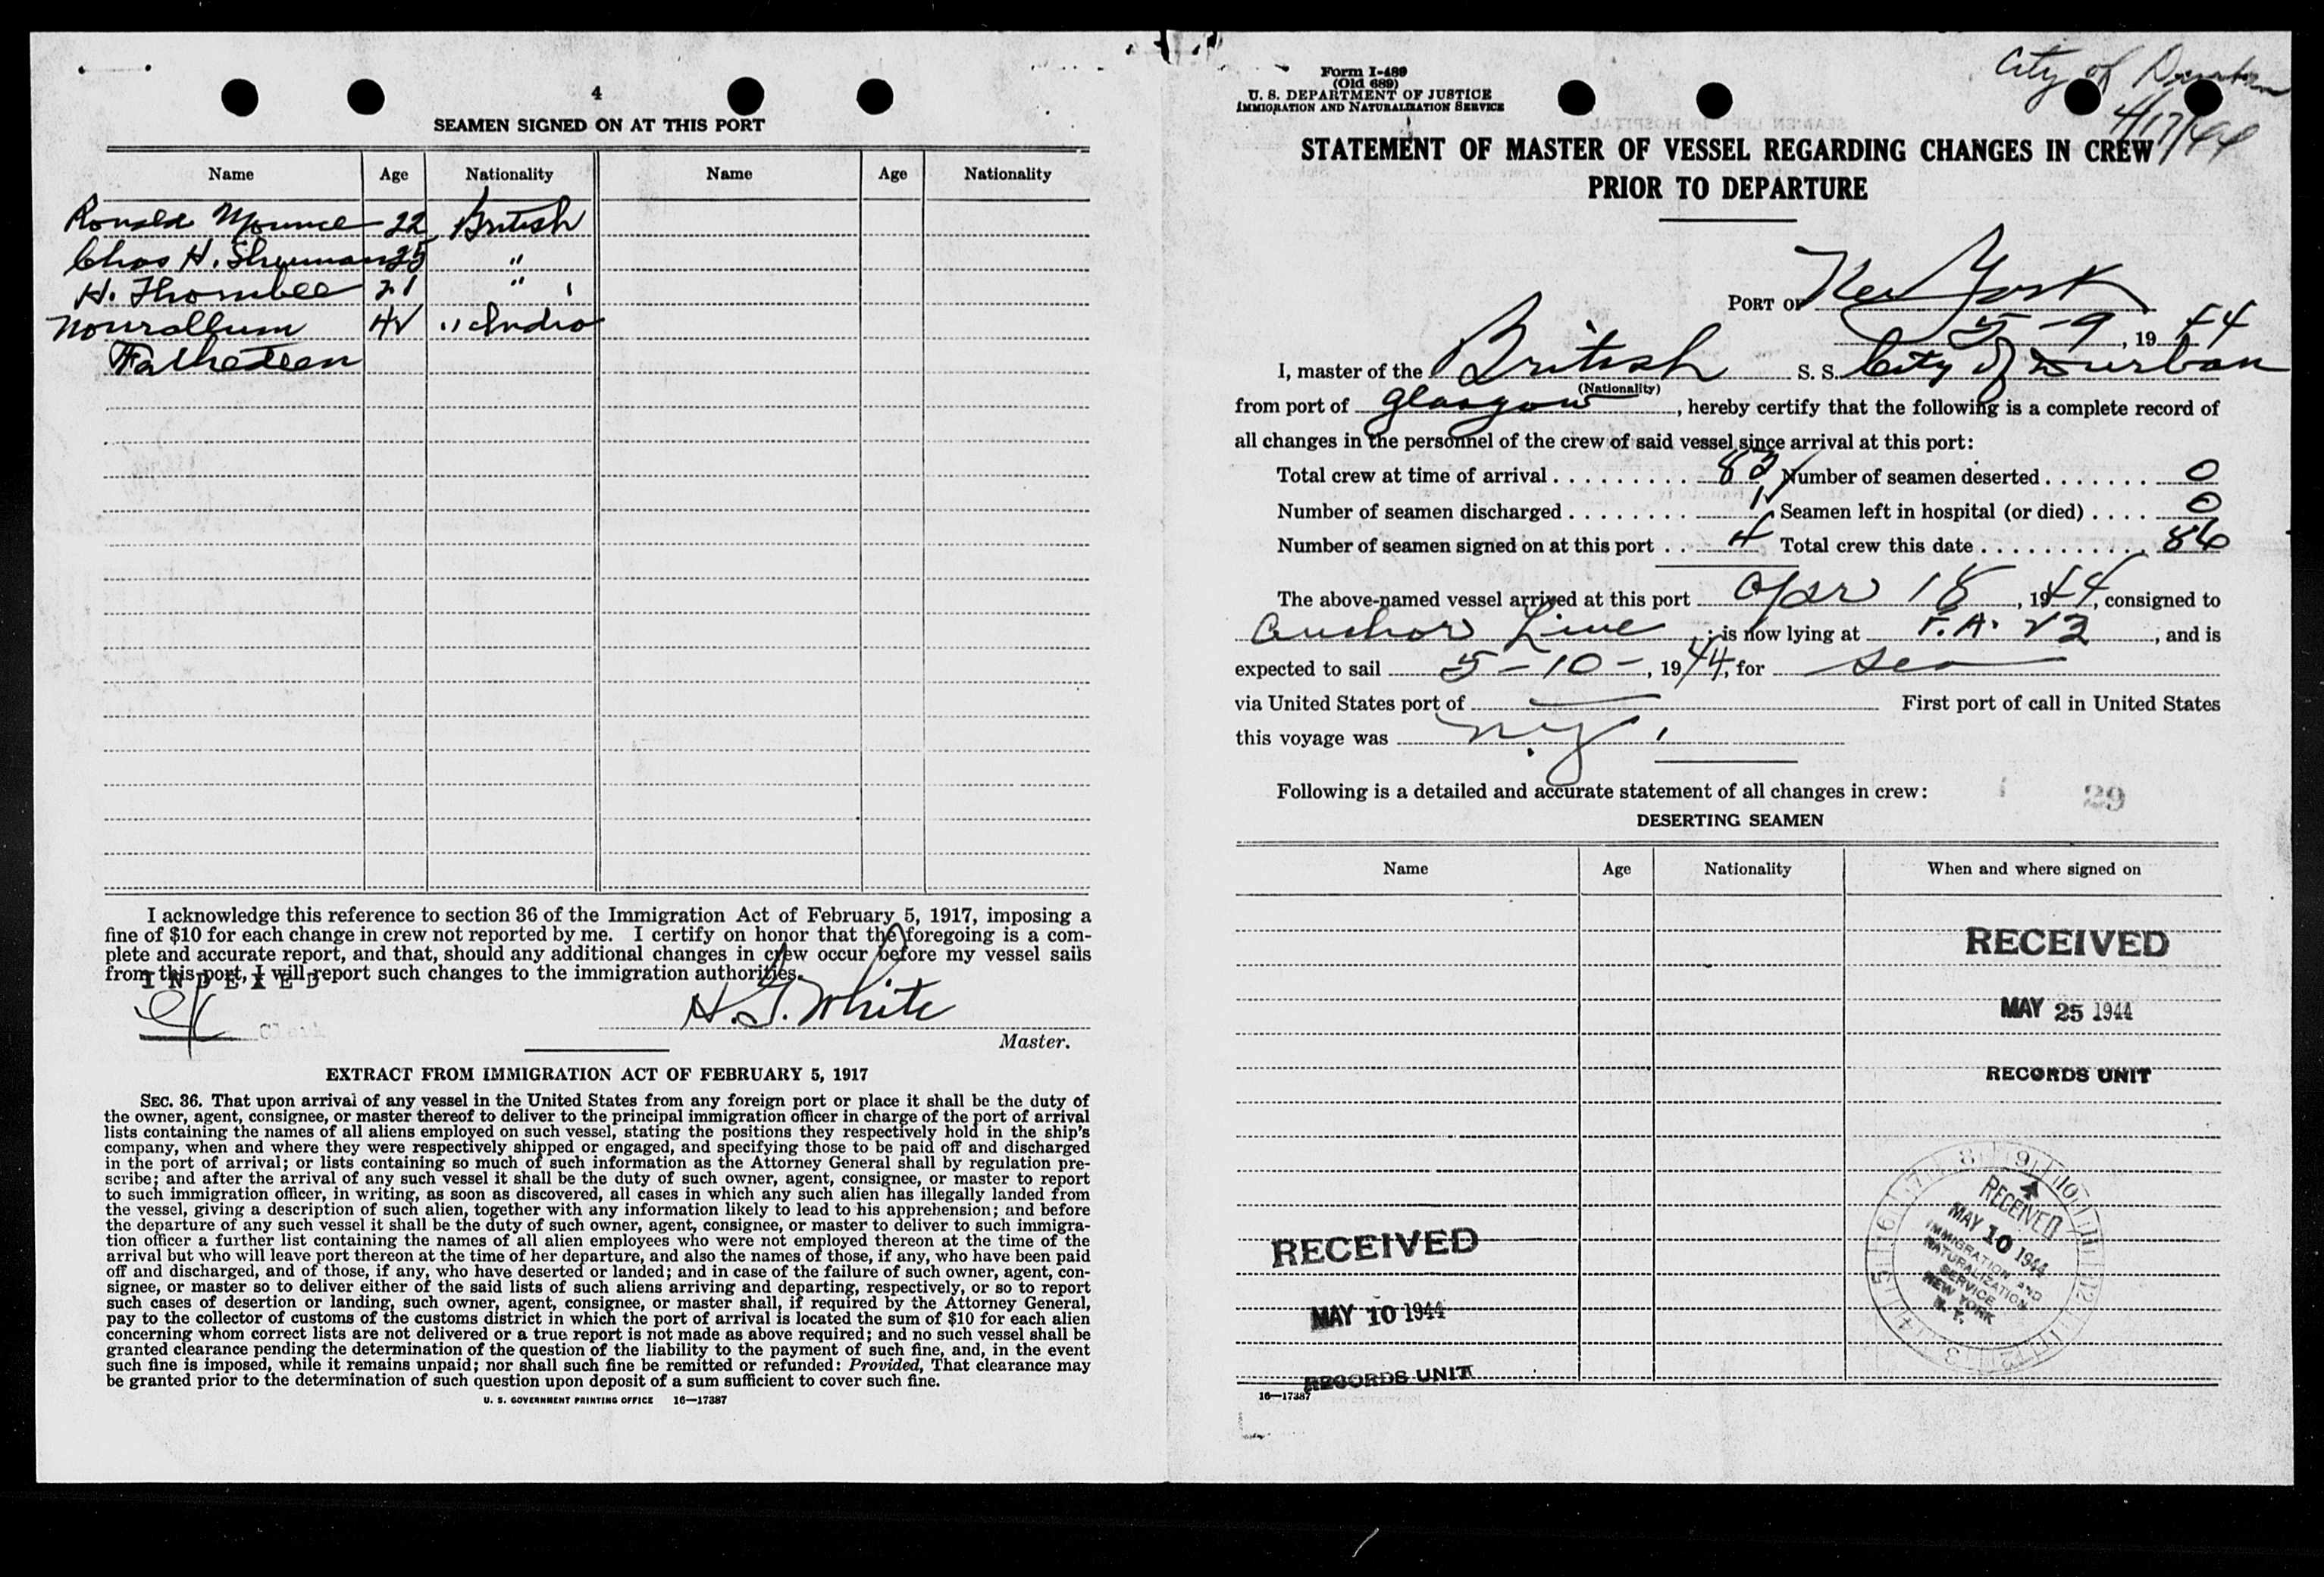 4
SEAMEN SIGNED ON AT THIS PORT
Name Age Nationality Name Age Nationality
Ronald Mounce 22 British
Chas H. Shuman 25 "
H. Thornbee 21 "
Nourallum 42 " India
Fathedeen
I acknowledge this reference to section 36 of the Immigration Act of February 5, 1917, imposing a
fine of $10 for each change in crew not reported by me. I certify on honor that the foregoing is a com-
plete and accurate report, and that, should any additional changes in crew occur before my vessel sails
from this port, I will report such changes to the immigration authorities.
INDEXED
H. G. White
Clerk
Master.
EXTRACT FROM IMMIGRATION ACT OF FEBRUARY 5, 1917
SEC. 36. That upon arrival of any vessel in the United States from any foreign port or place it shall be the duty of
the owner, agent, consignee, or master thereof to deliver to the principal immigration officer in charge of the port of arrival
lists containing the names of all aliens employed on such vessel, stating the positions they respectively hold in the ship's
company, when and where they were respectively shipped or engaged, and specifying those to be paid off and discharged
in the port of arrival; or lists containing so much of such information as the Attorney General shall by regulation pre-
scribe; and after the arrival of any such vessel it shall be the duty of such owner, agent, consignee, or master to report
to such immigration officer, in writing, as soon as discovered, all cases in which any such alien has illegally landed from
the vessel, giving a description of such alien, together with any information likely to lead to his apprehension; and before
the departure of any such vessel it shall be the duty of such owner, agent, consignee, or master to deliver to such immigra-
tion officer a further list containing the names of all alien employees who were not employed thereon at the time of the
arrival but who will leave port thereon at the time of her departure, and also the names of those, if any, who have been paid
off and discharged, and of those, if any, who have deserted or landed; and in case of the failure of such owner, agent, con-
signee, or master so to deliver either of the said lists of such aliens arriving and departing, respectively, or so to report
such cases of desertion or landing, such owner, agent, consignee, or master shall, if required by the Attorney General,
pay to the collector of customs of the customs district in which the port of arrival is located the sum of $10 for each alien
concerning whom correct lists are not delivered or a true report is not made as above required; and no such vessel shall be
granted clearance pending the determination of the question of the liability to the payment of such fine, and, in the event
such fine is imposed, while it remains unpaid; nor shall such fine be remitted or refunded: Provided, That clearance may
be granted prior to the determination of such question upon deposit of a sum sufficient to cover such fine.
U. S. GOVERNMENT PRINTING OFFICE 16—17387
Form I-489
(Old 689)
U. S. DEPARTMENT OF JUSTICE
IMMIGRATION AND NATURALIZATION SERVICE
City of Durban
4/17/44
STATEMENT OF MASTER OF VESSEL REGARDING CHANGES IN CREW
PRIOR TO DEPARTURE
PORT OF New York
5-9, 1944
I, master of the British S. S. City of Durban
(Nationality)
from port of Glasgow, hereby certify that the following is a complete record of
all changes in the personnel of the crew of said vessel since arrival at this port:
Total crew at time of arrival 83 Number of seamen deserted 0
Number of seamen discharged 1 Seamen left in hospital (or died) 0
Number of seamen signed on at this port 4 Total crew this date 86
The above-named vessel arrived at this port Apr 18, 1944, consigned to
Anchor Line; is now lying at F.A. 23, and is
expected to sail 5-10-, 1944, for Sea
via United States port of — First port of call in United States
this voyage was N.Y.
Following is a detailed and accurate statement of all changes in crew:
29
DESERTING SEAMEN
Name Age Nationality When and where signed on
RECEIVED
MAY 25 1944
RECORDS UNIT
RECEIVED
MAY 10 1944
IMMIGRATION AND
NATURALIZATION
SERVICE
NEW YORK
N. Y.
RECEIVED
MAY 10 1944
RECORDS UNIT
16—17387